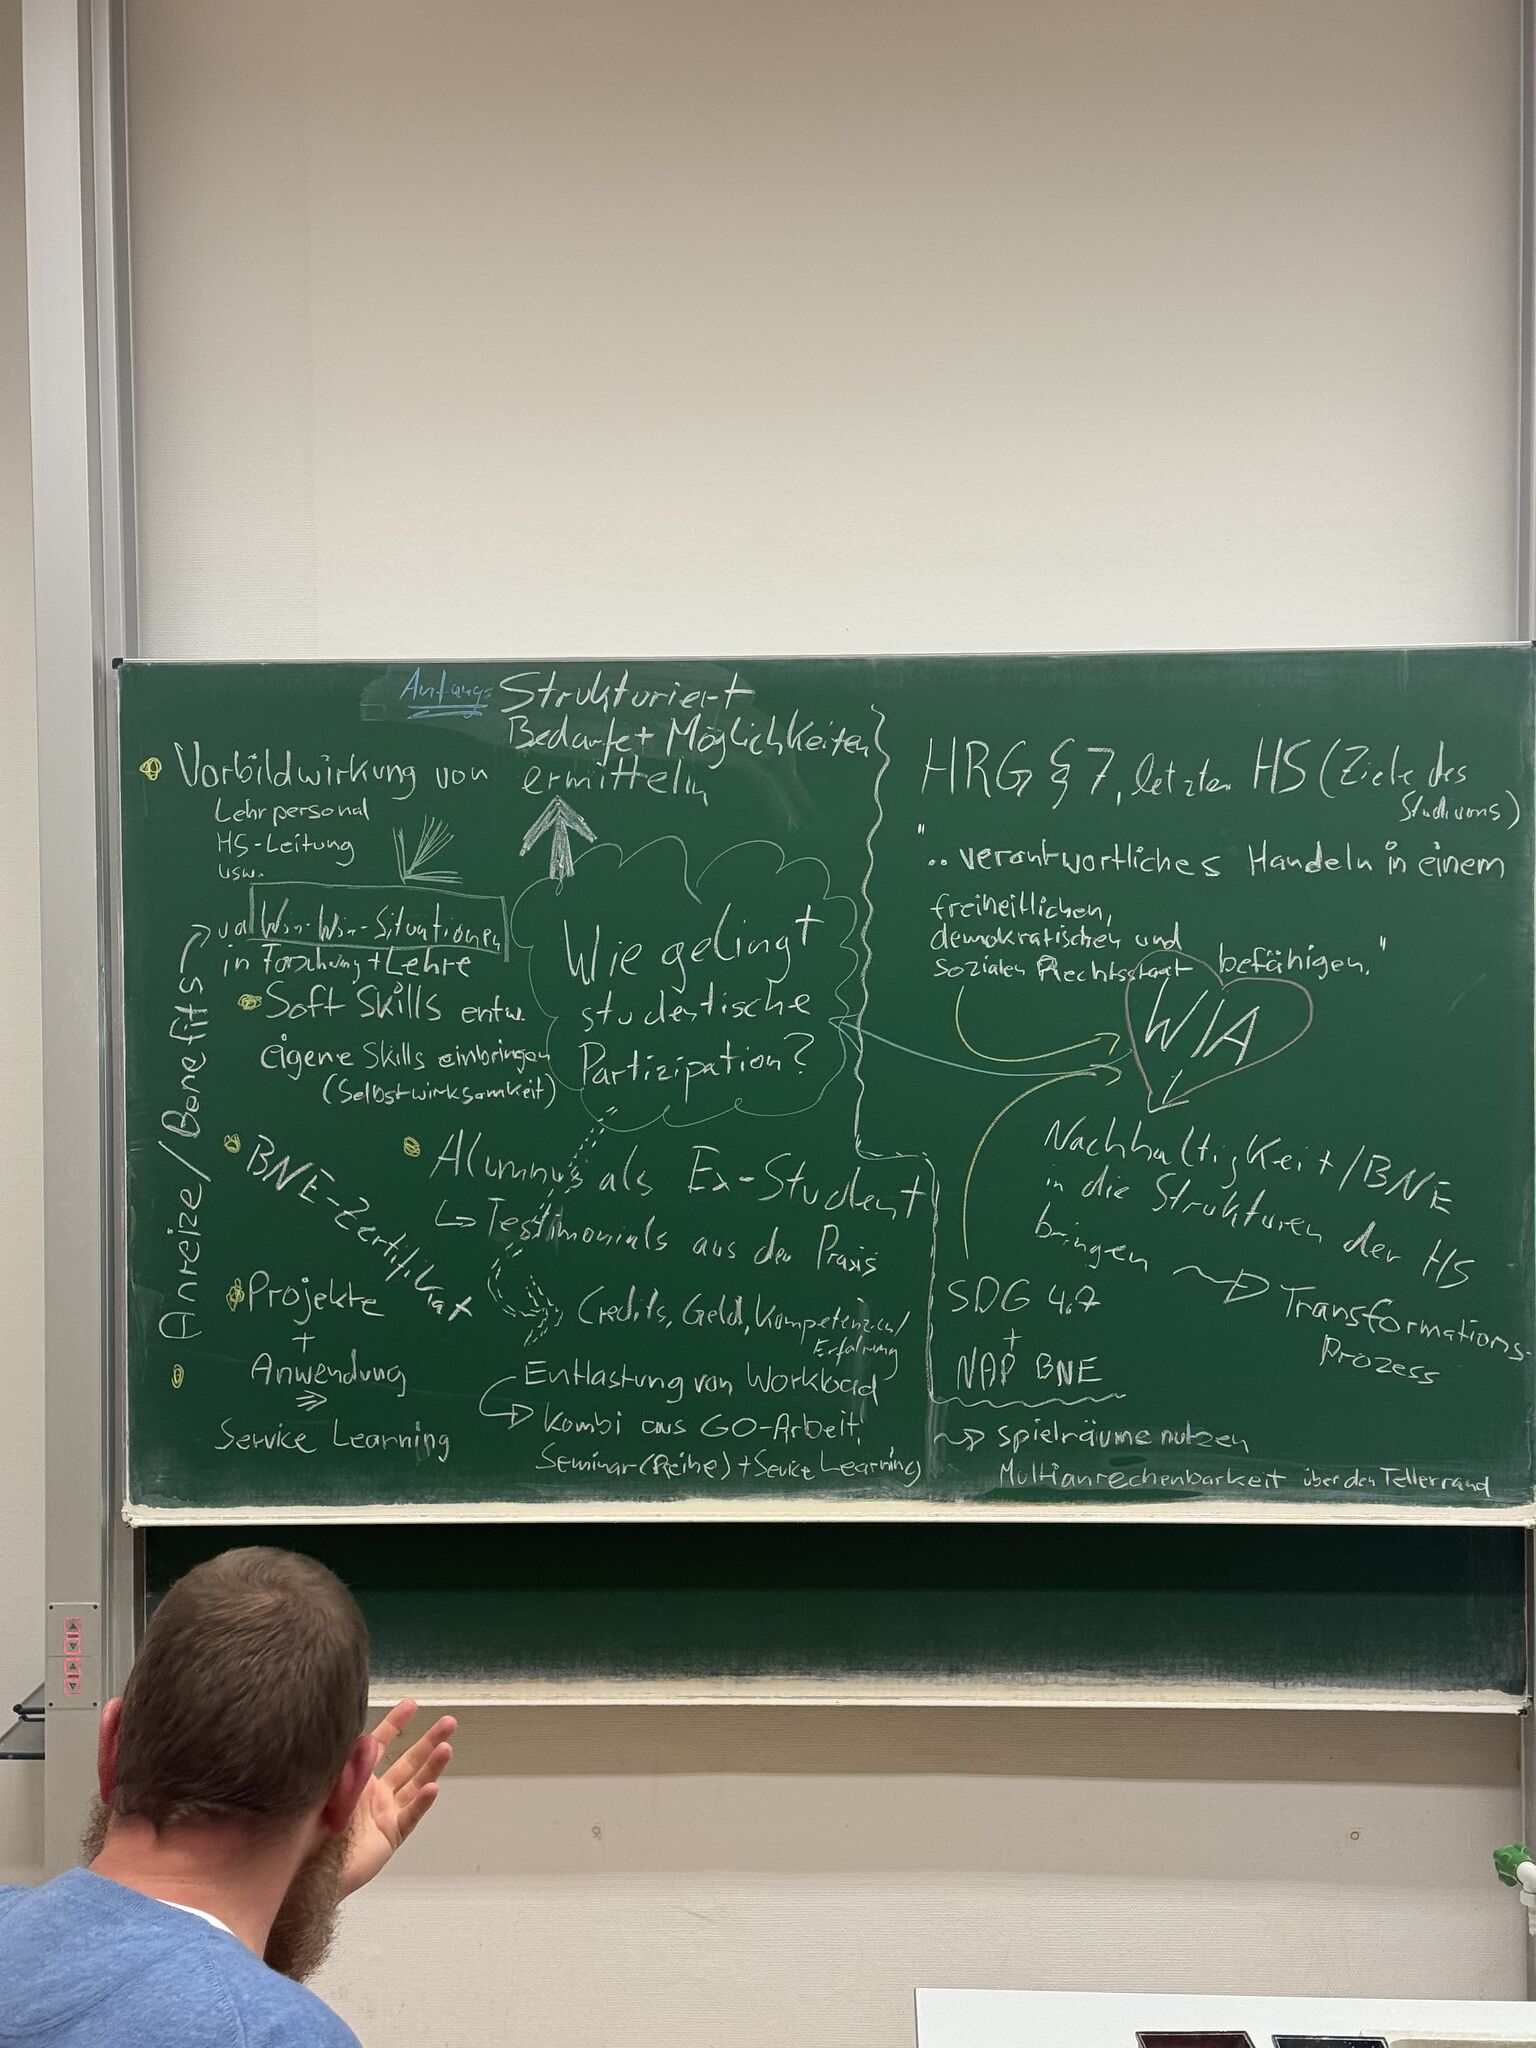 Anfang: Strukturiert
Bedarfe + Möglichkeiten
ermitteln
Vorbildwirkung von
Lehrpersonal
HS-Leitung
usw.
Win-Win-Situationen
in Forschung + Lehre
Soft Skills entw.
eigene Skills einbringen
(Selbstwirksamkeit)
Anreize/Benefits
BNE-Zertifikat
Projekte
+
Anwendung
Service Learning
Wie gelingt
studentische
Partizipation?
Alumnus als Ex-Student
Testimonials aus der Praxis
Credits, Geld, Kompetenzen/
Erfahrung
Entlastung von Workload
Kombi aus GO-Arbeit,
Seminar(Reihe) + Service Learning
HRG § 7, letzter HS (Ziele des
Studiums)
"..verantwortliches Handeln in einem
freiheitlichen,
demokratischen und
sozialen Rechtsstaat befähigen."
WIA
Nachhaltigkeit/BNE
in die Strukturen der HS
bringen
Transformations-
Prozess
SDG 4.7
+
NAP BNE
Spielräume nutzen
Multianrechenbarkeit über den Tellerrand